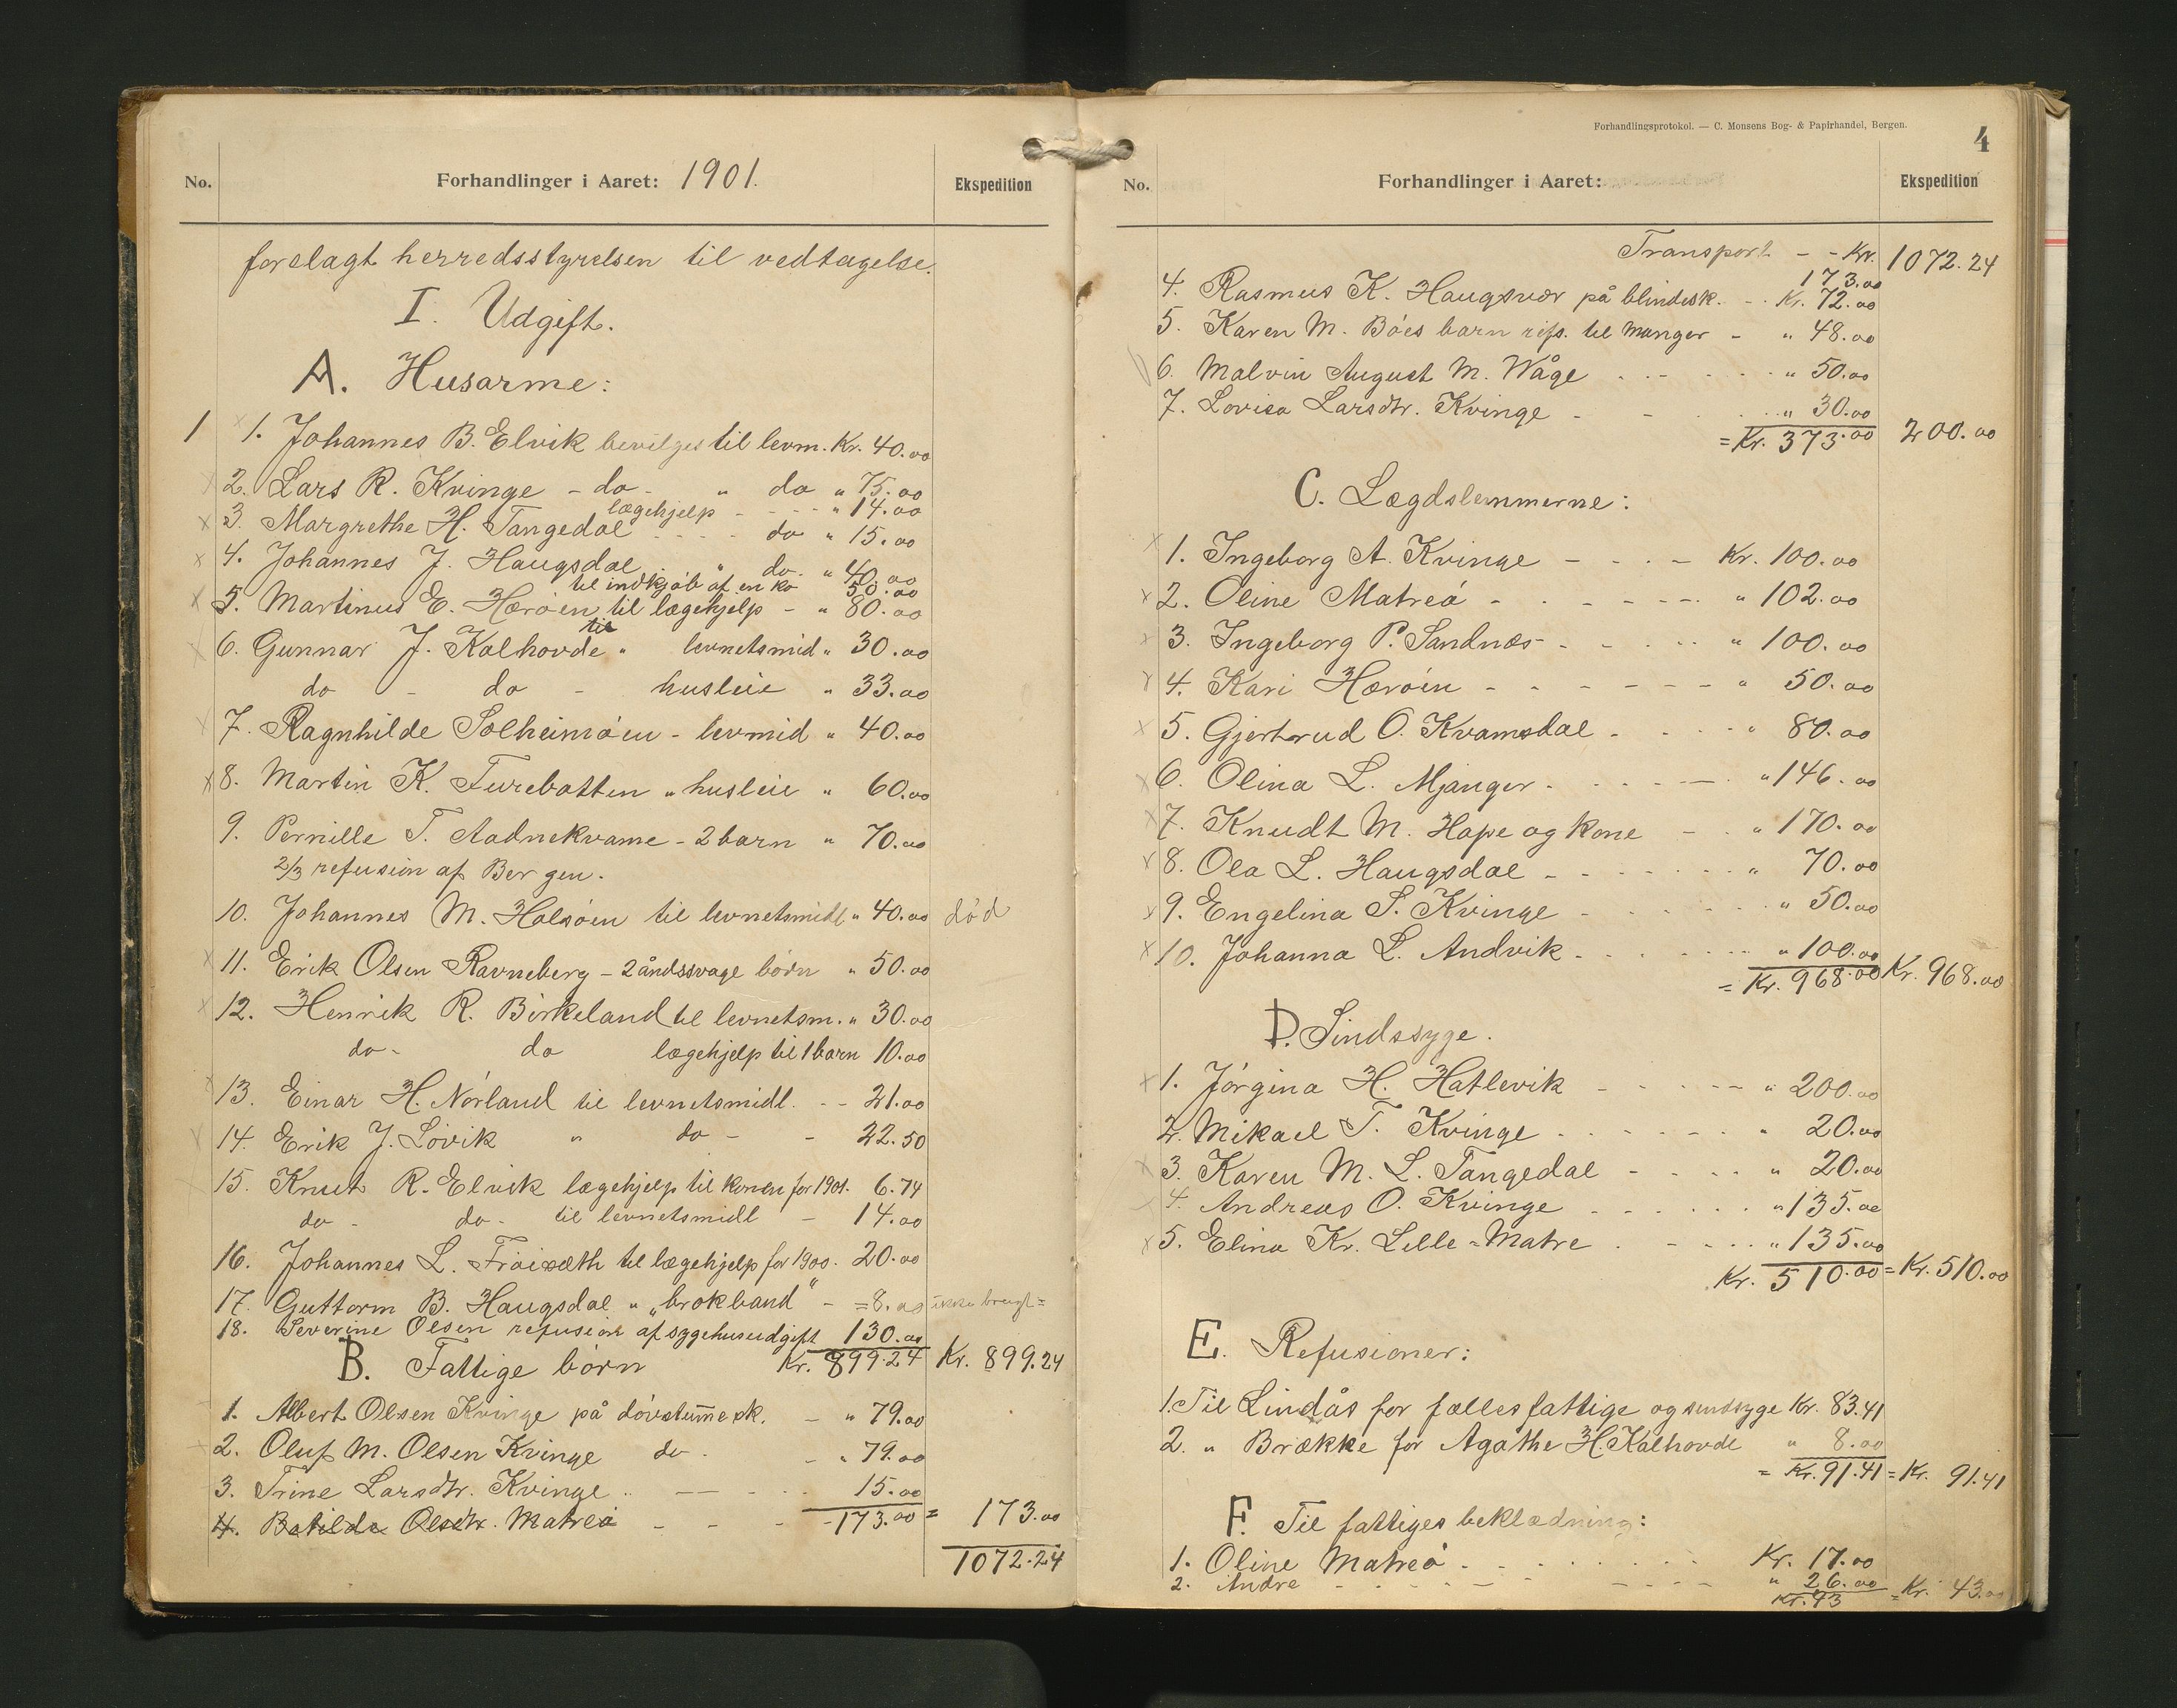 No. Forhandlinger i Aaret: 1901. Ekspedition
forelagt herredsstyrelsen til vedtagelse.
I. Udgift.
A. Husarme:
1 1. Johannes B. Elvik bevilges til levm. Kr. 40.00
2. Lars R. Kvinge - do - " do " 75.00
lægehjelp - - - - " 14.00
3. Margrethe H. Tangedal - - - - do " 15.00
4. Johannes J. Haugsdal " do. " 40.00
til indkjøb af en ko 50.00
5. Martinus E. Herøen til lægehjelp - " 80.00
til
6. Gunnar J. Kalhovde " levnetsmid " 30.00
do - do - husleie " 33.00
7. Ragnhilde Solheimøen - levmid " 40.00
8. Martin K. Furebotten " husleie " 60.00
9. Pernille T. Aadnekvame - 2 barn " 70.00
2/3 refusion af Bergen.
10. Johannes M. Holsøen til levnetsmidl " 40.00 død
11. Erik Olsen Ravneberg - 2 åndssvage børn " 50.00
12. Henrik R. Birkeland til levnetsm. " 30.00
do - do lægehjelp til 1 barn 10.00
13. Einar H. Nørland til levnetsmidl. - - 21.00
14. Erik J. Løvik " do - - 22.50
15. Knut R. Elvik lægehjelp til konen for 1901. 6.74
do - do - til levnetsmidl - 14.00
16. Johannes L. Frøisæth til lægehjelp for 1900. 20.00
17. Guttorm B. Haugsdal " "brokband" - = 8.00 ikke brugt =
18. Severine Olsen refusion af sygehusudgift 130.00
B. Fattige børn Kr. 899.24 Kr. 899.24
1. Albert Olsen Kvinge på døvstummesk. - " 79.00
2. Oluf M. Olsen Kvinge do. - " 79.00
3. Trine Larsdtr. Kvinge .. - - - 15.00
4. Botilda Olsdtr. Matreø - - - 173.00 = 173.00
1072.24
Forhandlingsprotokol. — C. Monsens Bog- & Papirhandel, Bergen.
4
No. Forhandlinger i Aaret: Ekspedition
Transport - - Kr. 1072.24
173.00
4. Rasmus K. Haugsvær på blindesk. - - Kr. 72.00
5. Karen M. Bøes barn refs. til Manger - " 48.00
6. Malvin August M. Wåge - - - - " 50.00
7. Lovisa Larsdtr. Kvinge - - - " 30.00
= Kr. 373.00 200.00
C. Lægdslemmerne:
1. Ingeborg A. Kvinge - - - - Kr. 100.00
2. Oline Matreø - - - - - - " 102.00
3. Ingeborg P. Sandnæs - - - - " 100.00
4. Kari Herøen - - - - - - - " 50.00
5. Gjertrud O. Kvamsdal - - - - " 80.00
6. Olina L. Mjanger - - - - - " 146.00
7. Knudt M. Hope og kone - - " 170.00
8. Ola L. Haugsdal - - - - - - " 70.00
9. Engelina S. Kvinge - - - - - " 50.00
10. Johanna L. Andvik - - - - - " 100.00
= Kr. 968.00 Kr. 968.00
D. Sindssyge.
1. Jørgina H. Hatlevik - - - - - " 200.00
2. Mikael T. Kvinge - - - - - - " 20.00
3. Karen M. L. Tangedal - - - - " 20.00
4. Andreas O. Kvinge - - - - - - " 135.00
5. Elina Kr. Lille-Matre - - - - " 135.00
Kr. 510.00 = Kr. 510.00
E. Refusioner:
1. Til Lindås for fællesfattige og sindsyge Kr. 83.41
2. " Brække for Agathe H. Kalhovde " 8.00
= Kr. 91.41 = Kr. 91.41
F. Til fattiges beklædning:
1. Oline Matreø - - - - - - - Kr. 17.00
2. Andre - - - - - - - - " 26.00
Kr. 43 = Kr. 43.00